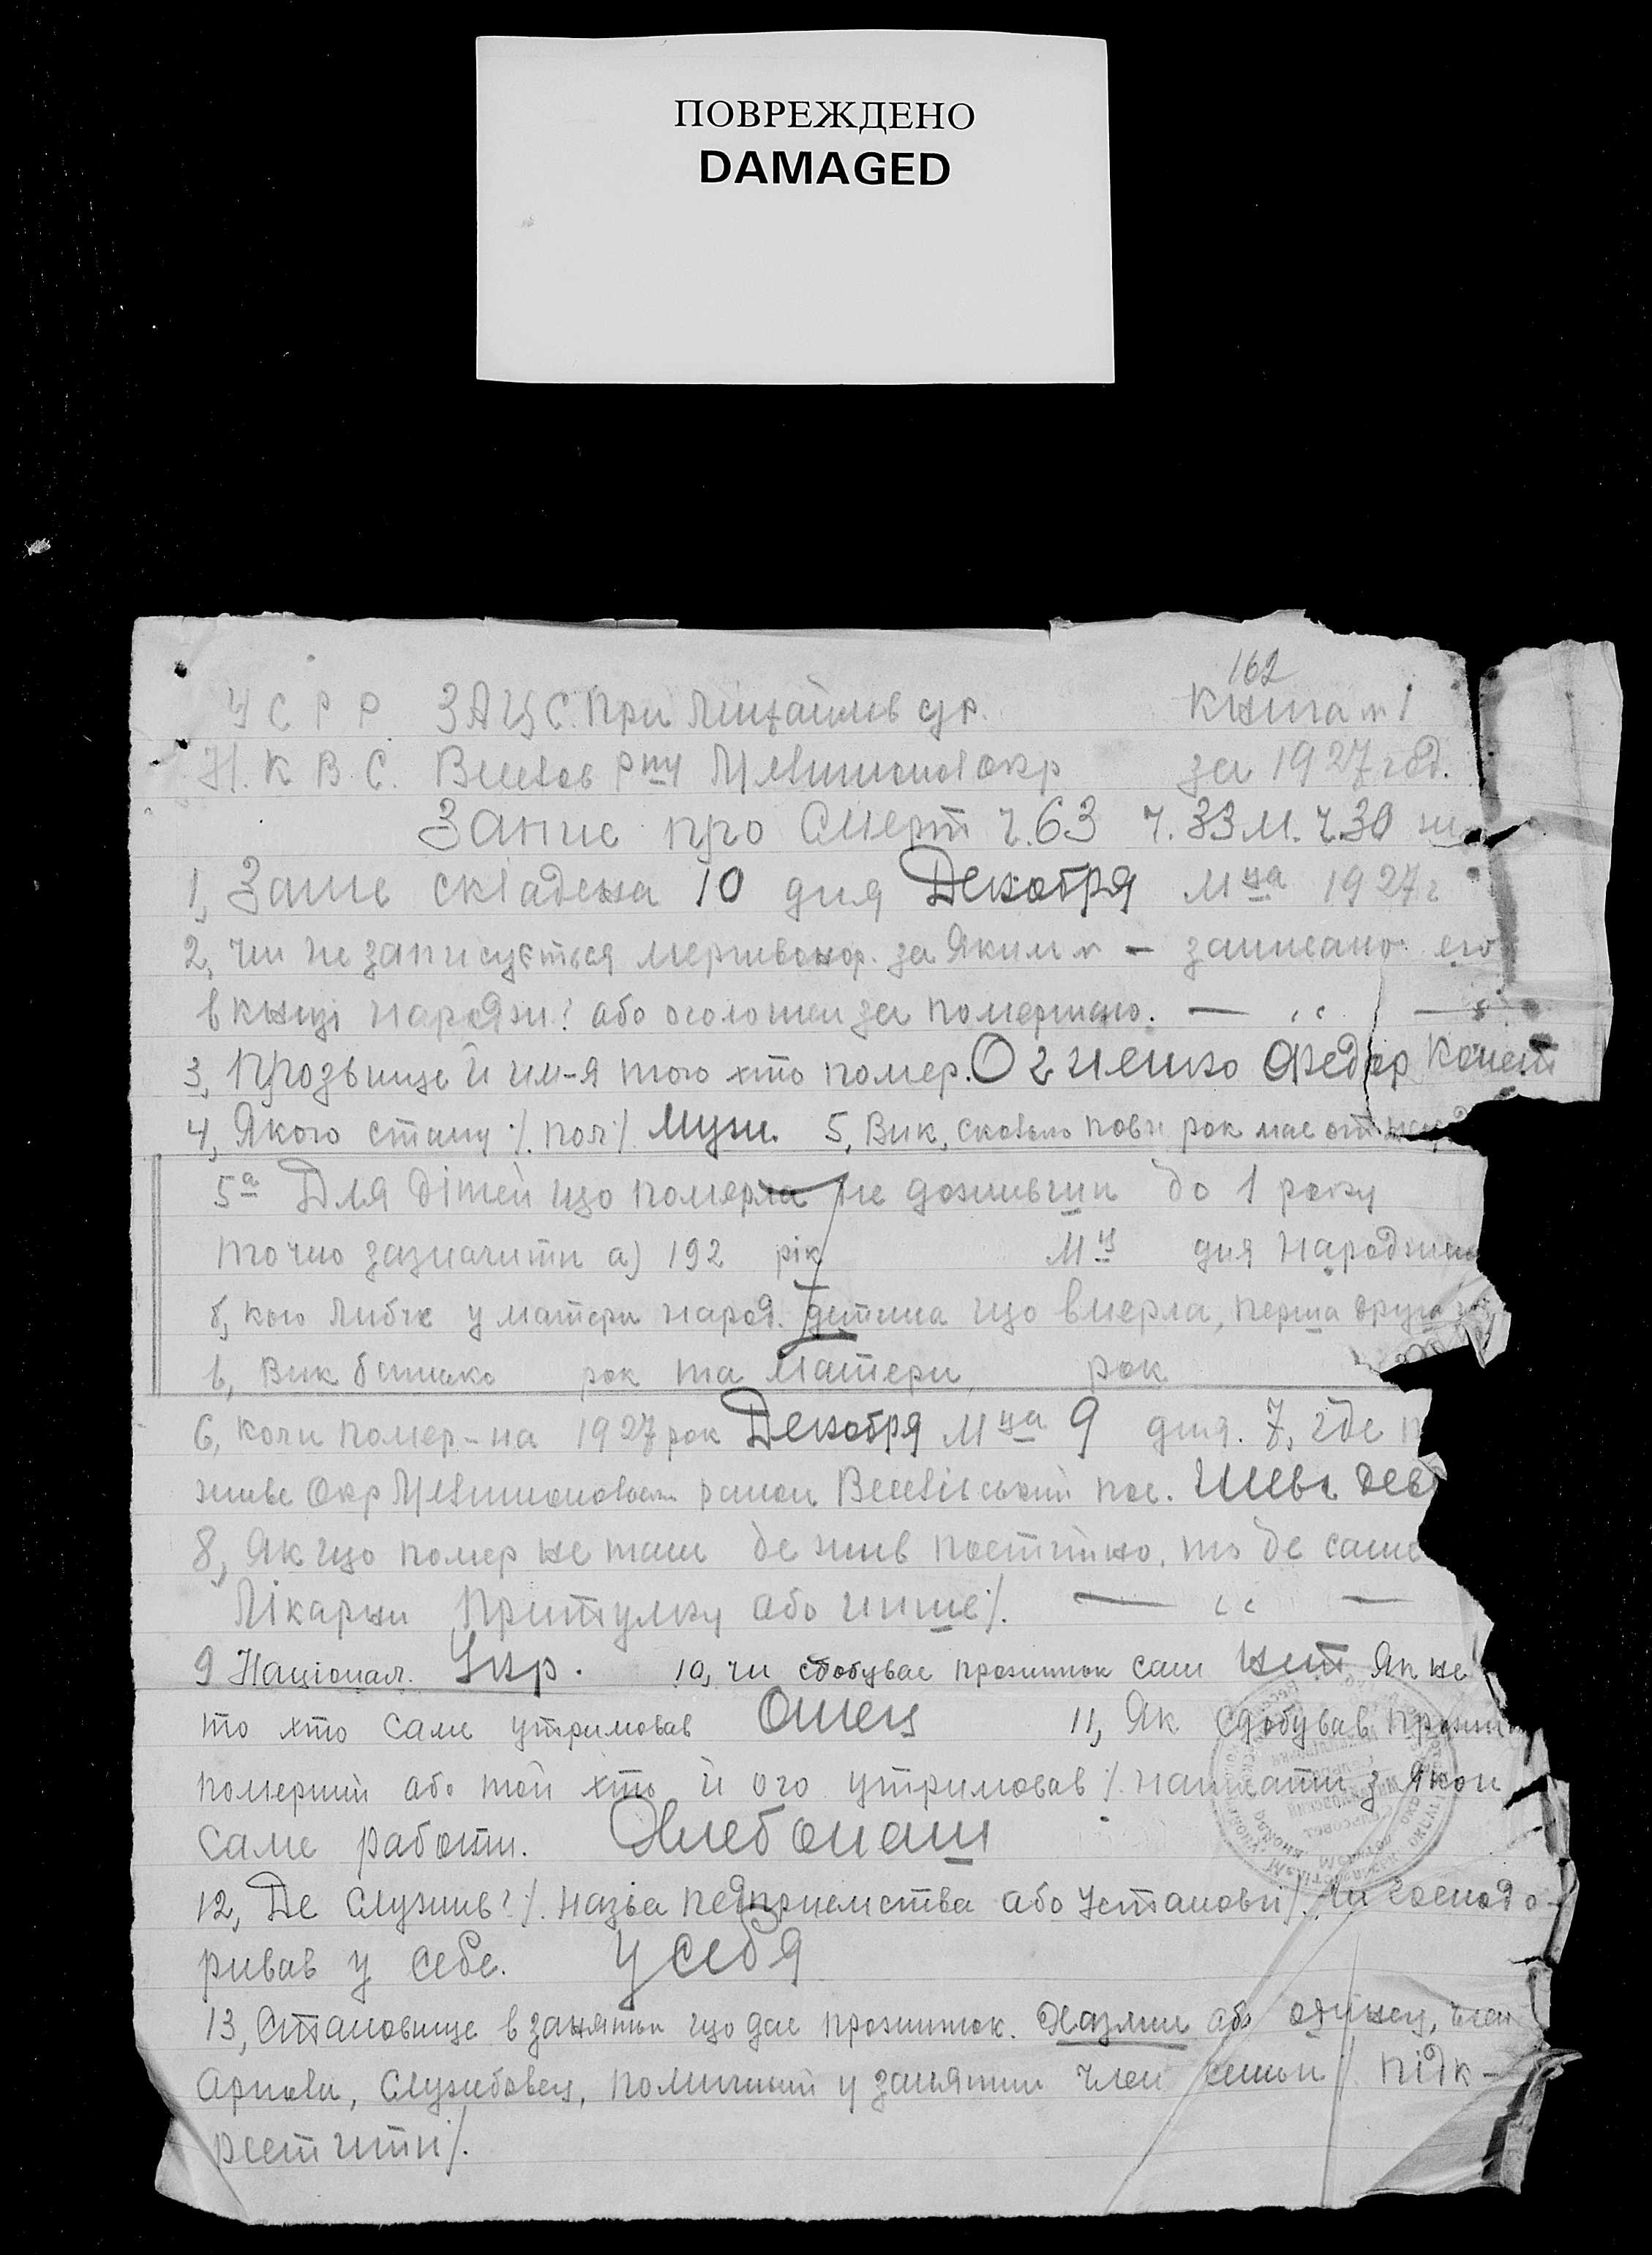 ПОВРЕЖДЕНО
DAMAGED
162
У С Р Р ЗАЦС. при Міхайлів с/р. Книга № 1
Н. К В С. Весел̇ов р-ну Мелитопол окр за 1927 год.
Запис про Смерт ч. 63 ч. 33 м. ч. 30
1, Запис складена 10 дня Декабря м-ца 1927 г
2, чи не записується мертвонар. за яким № — записано его
в книзі народж? або оголошен за помершаго. — " —
3, Прозвище й им-я того хто помер. Огненко Федор
4, Якого стану /. пол /. Муж. 5, Вик, сколько повн рок мае от
5а Для дітей що померла не доживши до 1 року
точно зазначити а) 192 рік М-ц дня
б, кою у матери народ. детина що вмерла, перша друга
в, Вик батько рок та Матери рок
6, коли помер-на 1927 рок Декабря м-ца 9 дня. 7, где
живе Окр район Веселівський пос. Шевч
8, Як що помер не там де жив постійно, то де саме
Лікарни Притулку або инше /. — " —
9 Національ. Укр. 10, чи сдобувае прожиток сам нет Як не
то хто саме утримовав Отец 11, Як Сдобував
померший або той хто його утримовав /. написати з якои
саме работи. Хлебопаш
12, Де служив? /. Назва педприемства або Установи /. чи господо-
ривав у себе. У себя
13, Становище в занятьи що дае прожиток. Хазяин або
Служебовец, помічний у занятии член семьи /. підк-
реститни /.